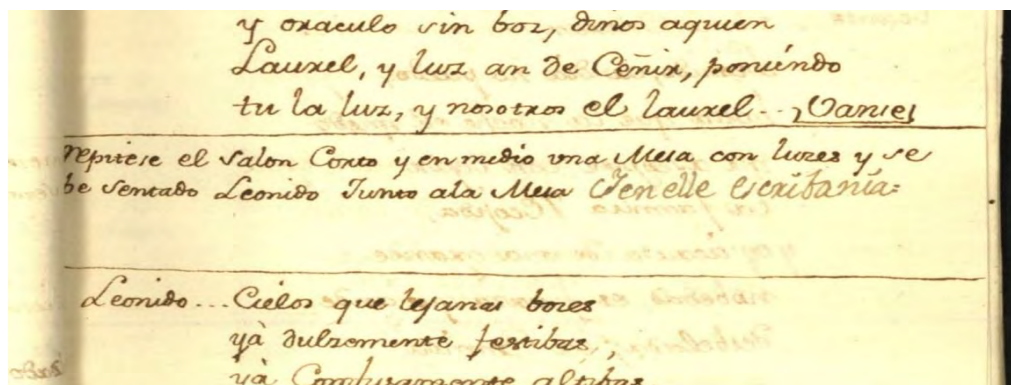 y oraculo sin boz, dinos aquien
Laurel, y luz an de Ceñir, poniéndo
tu la luz, y nosotros el laurel.. Vanse
repitese el Salon Corto y en medio una Mesa con luzes y se
be sentado Leonido Junto ala Mesa escribanía=
Leonido... Cielos que lejanas bozes
yà dulzemente festibas,
yà Confusamente altibas